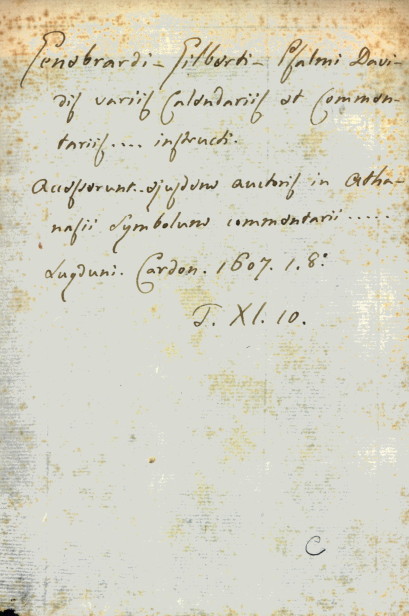 Genebrardi - Gilberti - Psalmi Davi-
dis variis Calendariis et Commen-
tariis.... instructi.
Accesserunt.. ejusdem auctoris in Atha-
nasii Symbolum commentarii .....
Lugduni. Cardon. 1607. 1. 8:
T. XI. 10.
C